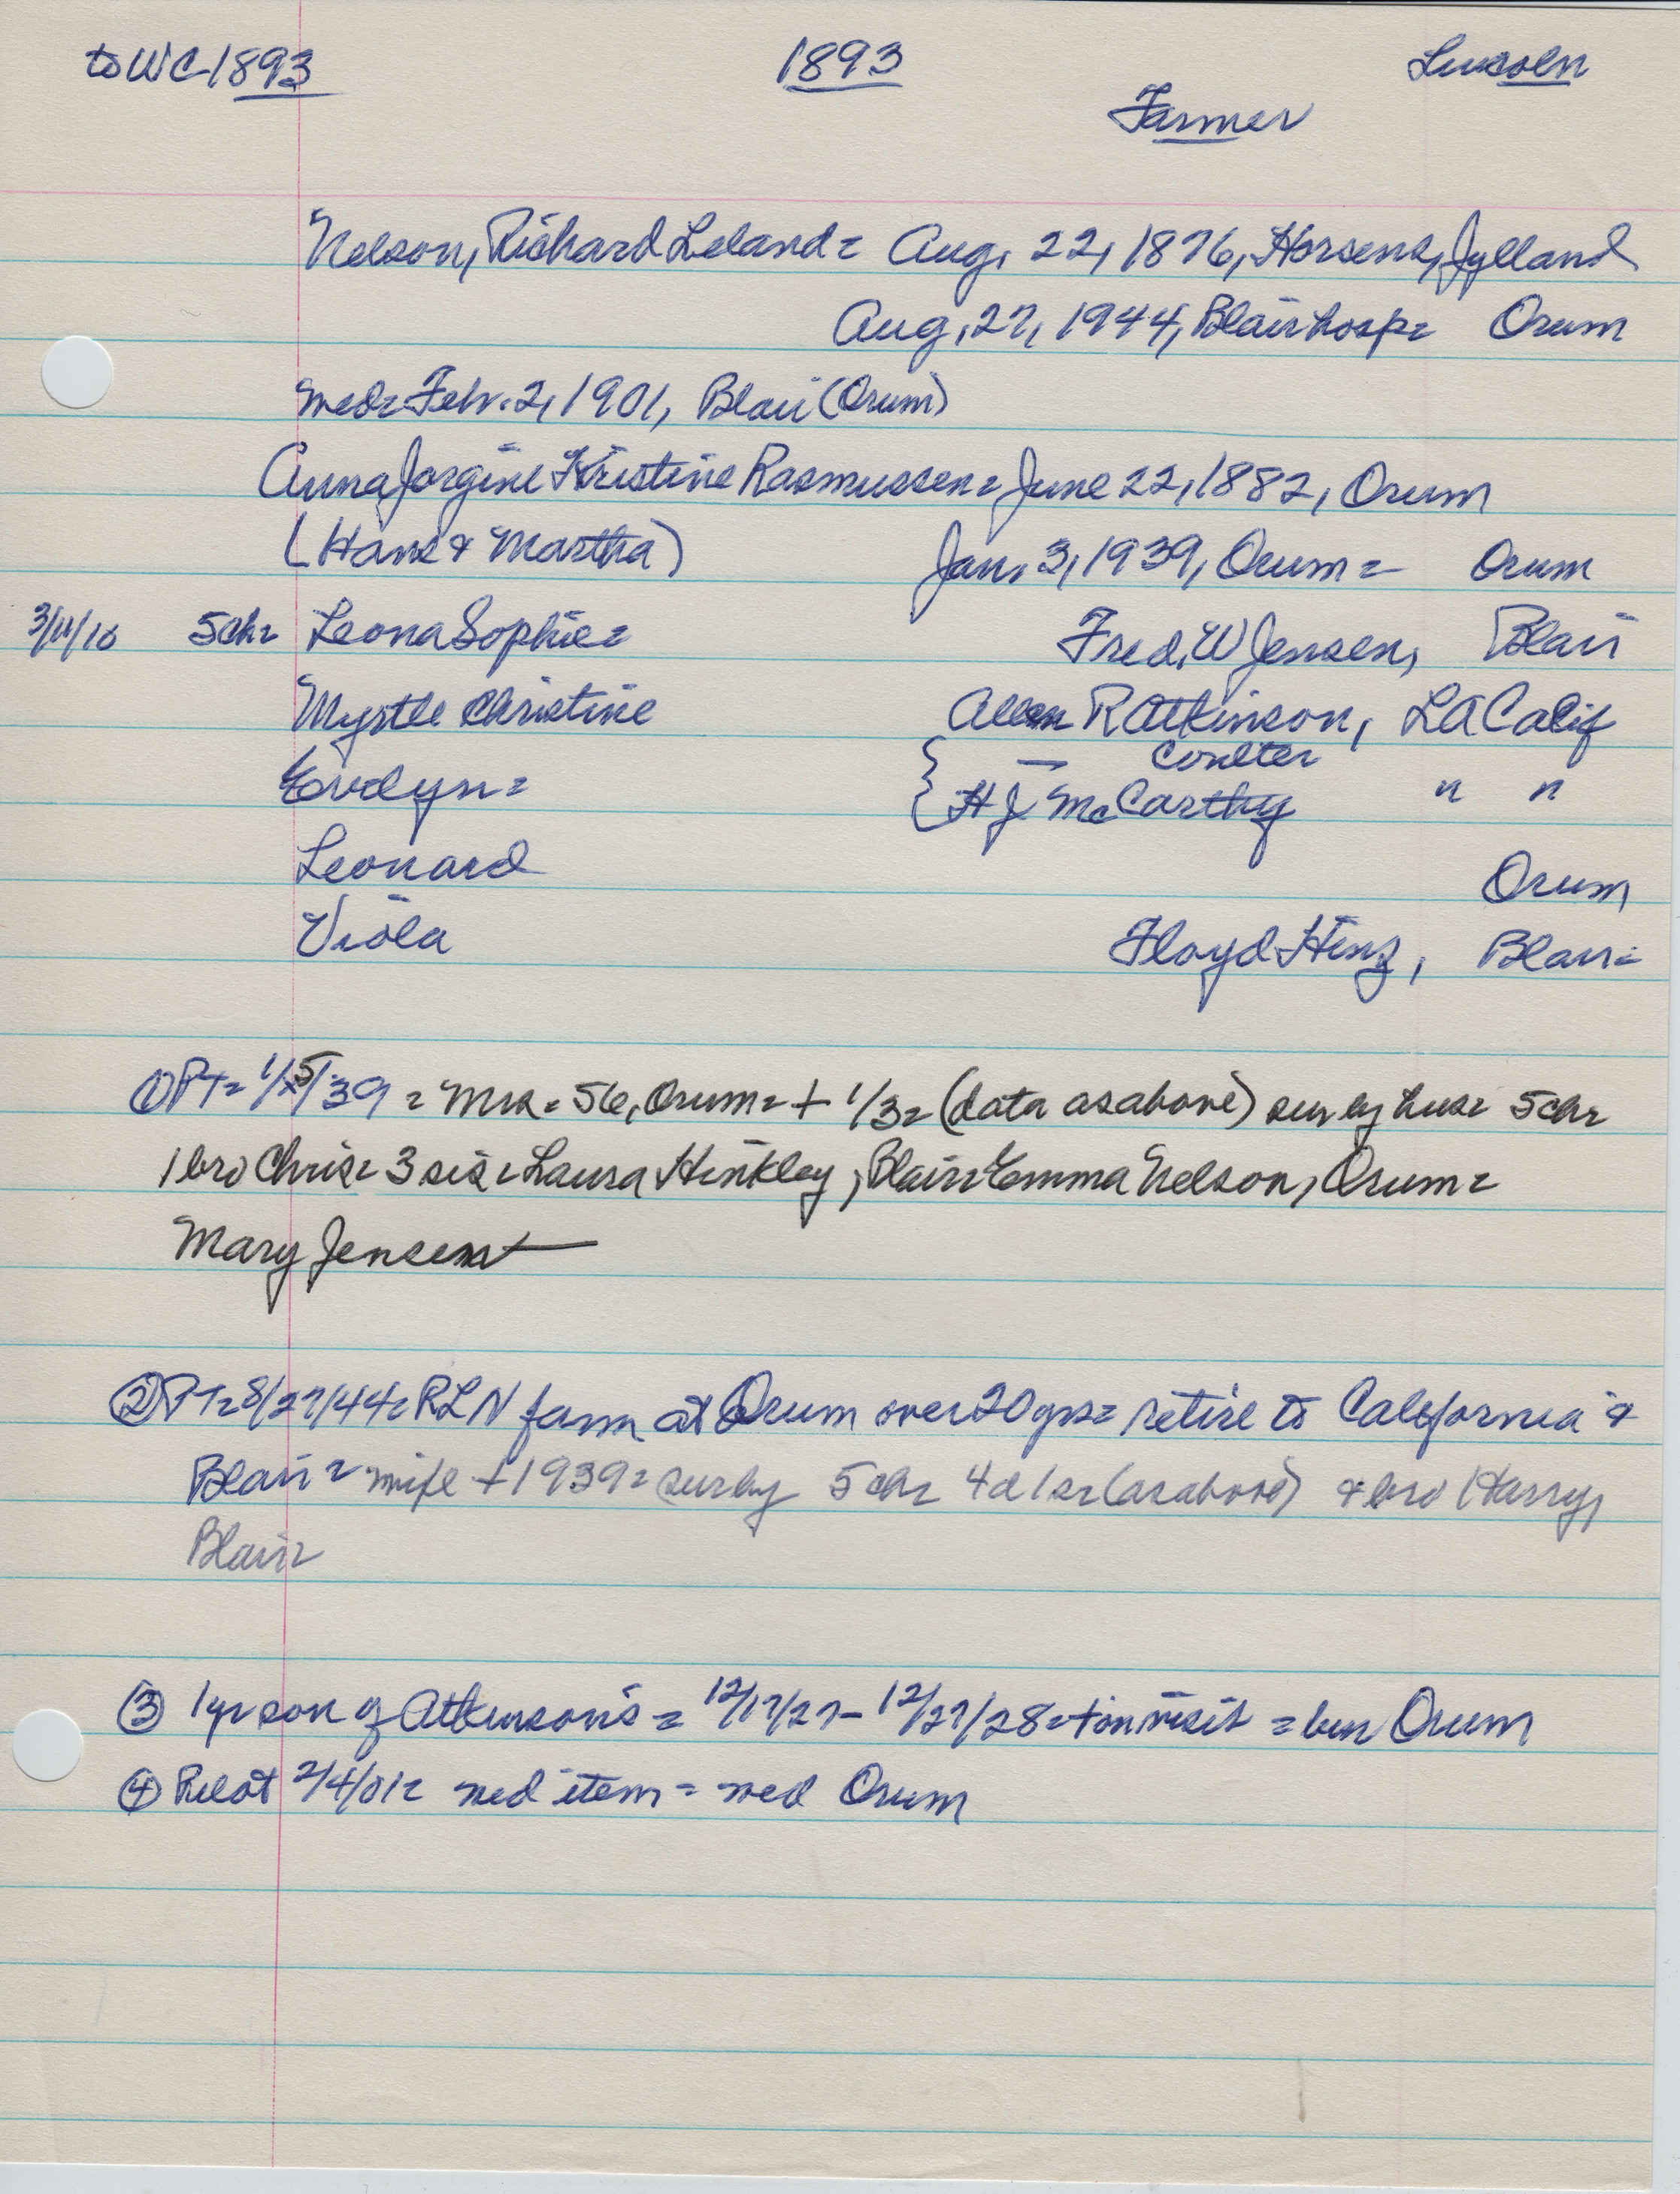 to WC 1893 1893 Lincoln
Farmer
Nelson, Richard Leland = Aug. 22, 1876, Horsens, Jylland
Aug. 27, 1944, Blair hosp = Orum
med = Febr. 2, 1901, Blair (Orum)
Anna Jorgine Kristine Rasmussen = June 22, 1882, Orum
(Hans & Martha) Jan. 3, 1939, Orum = Orum
3/11/10 5 ch = Leona Sophie = Fred. W Jensen, Blair
Myrtle Christine Allen R Atkinson, LA Calif
— Coulter
Evelyn = { H J McCarthy " "
Leonard Orum
Viola Floyd Hinz, Blair =
① PT = 1/5/39 = Mrs = 56, Orum = + 1/3 = (data as above) sur by hus = 5 ch =
1 bro Chris = 3 sis = Laura Hinkley, Blair = Emma Nelson, Orum =
Mary Jensen +
② PT = 8/27/44 = RLN farm at Orum over 20 yrs = retire to California &
Blair = wife + 1939 = sur by 5 ch = 4 d 1 s = (as above) & bro Harry,
Blair =
③ 1 yr son of Atkinson's = 12/17/27 – 12/27/28 = + on visit = bur Orum
④ Pilot 2/4/01 = med item = med Orum